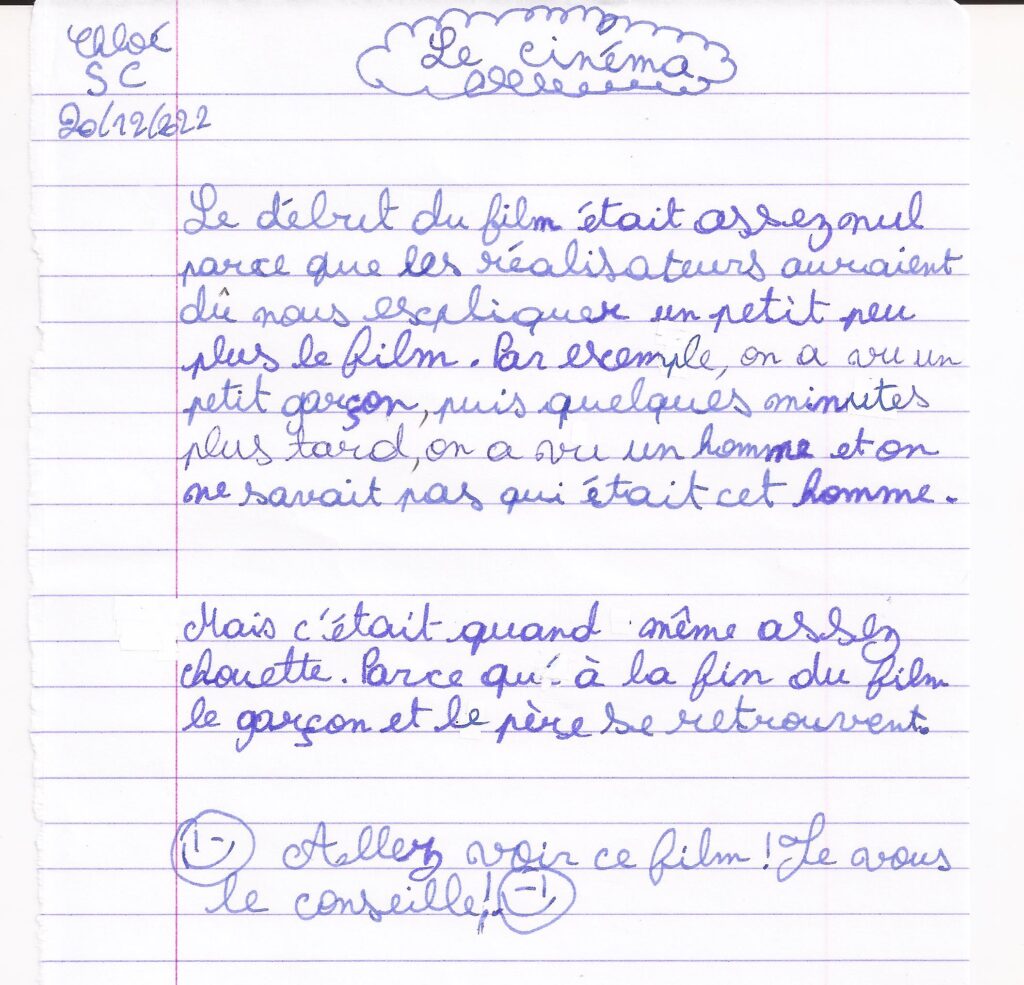 Chloé
5C
20/12/2022
Le cinéma
Le début du film était assez nul
parce que les réalisateurs auraient
dû nous expliquer un petit peu
plus le film. Par exemple, on a vu un
petit garçon, puis quelques minutes
plus tard, on a vu un homme et on
ne savait pas qui était cet homme.
Mais c'était quand même assez
chouette. Parce qu'à la fin du film
le garçon et le père se retrouvent.
Allez voir ce film ! Je vous
le conseille!